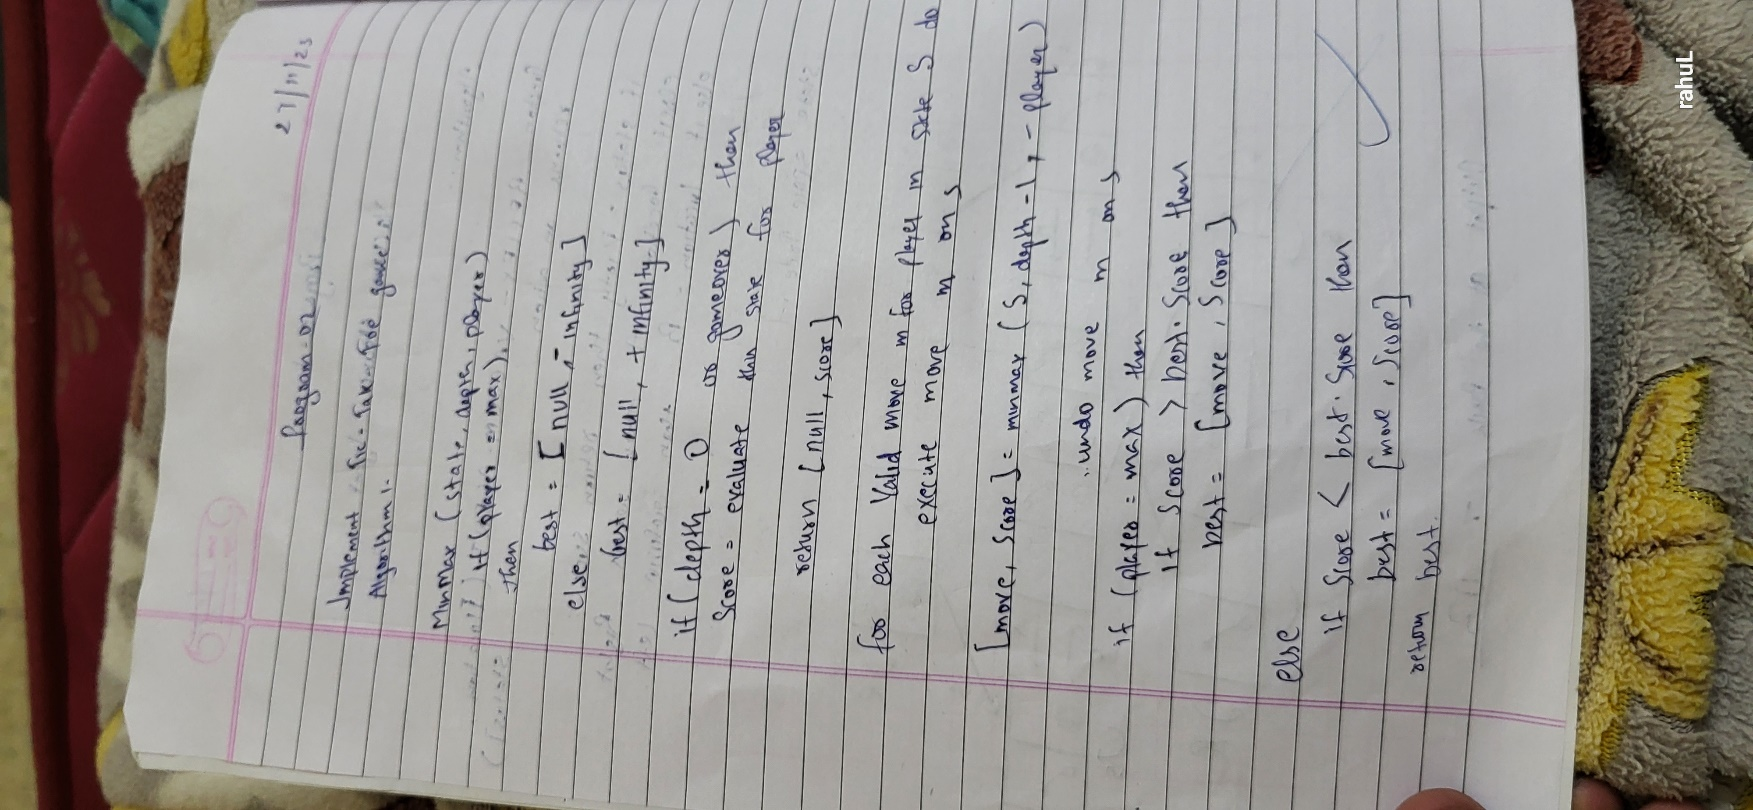 27/11/23
Program-02
Implement Tic-Tak-Toe game:
Algorithm:-
Minmax (state, depth, player)
if (player = max)
then
best = [null, -infinity]
else
best = [null, +infinity]
if (depth = 0 or gameover) then
Score = evaluate this state for player
return [null, score]
for each valid move m for player in state S do
execute move m on s
[move, score] = minmax (S, depth-1, -player)
undo move m on s
if (player = max) then
if score > best.score then
best = [move, score]
else
if score < best.score then
best = [move, score]
return best.
rahuL